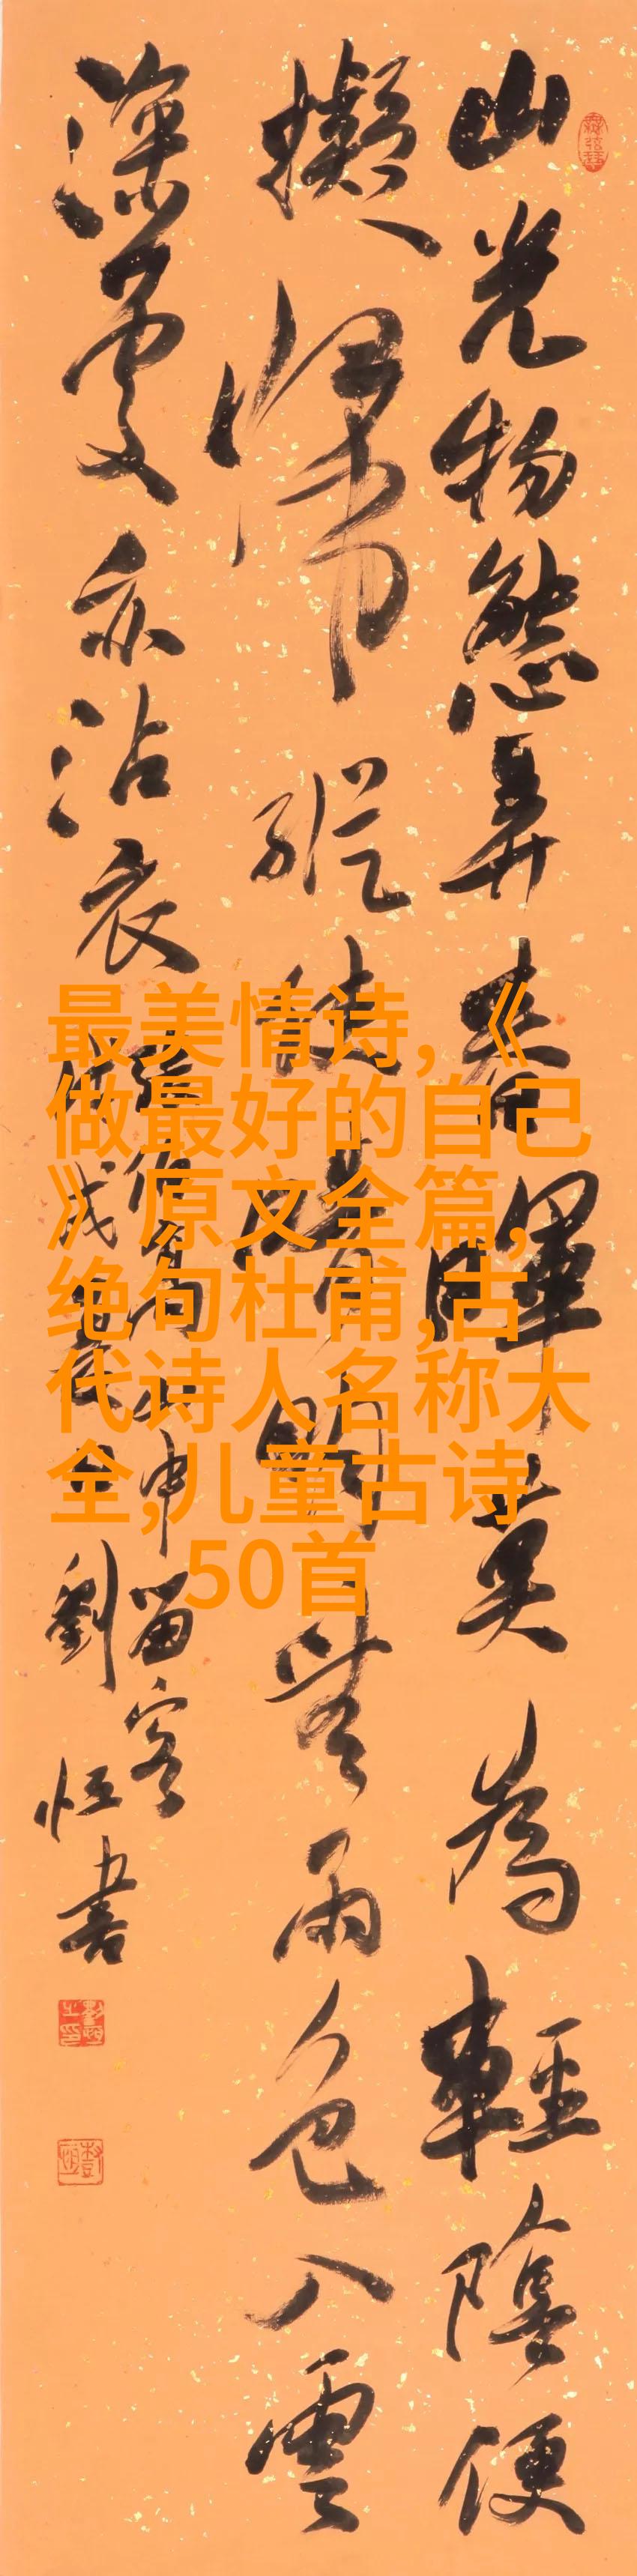 山光物態弄春暉莫為輕陰便
擬歸縱使晴明無雨色入雲
深處亦沾衣
山中留客
劉恒書
最美情诗,《
做最好的自己
》原文全篇,
绝句杜甫,古
代诗人名称大
全,儿童古诗
50首